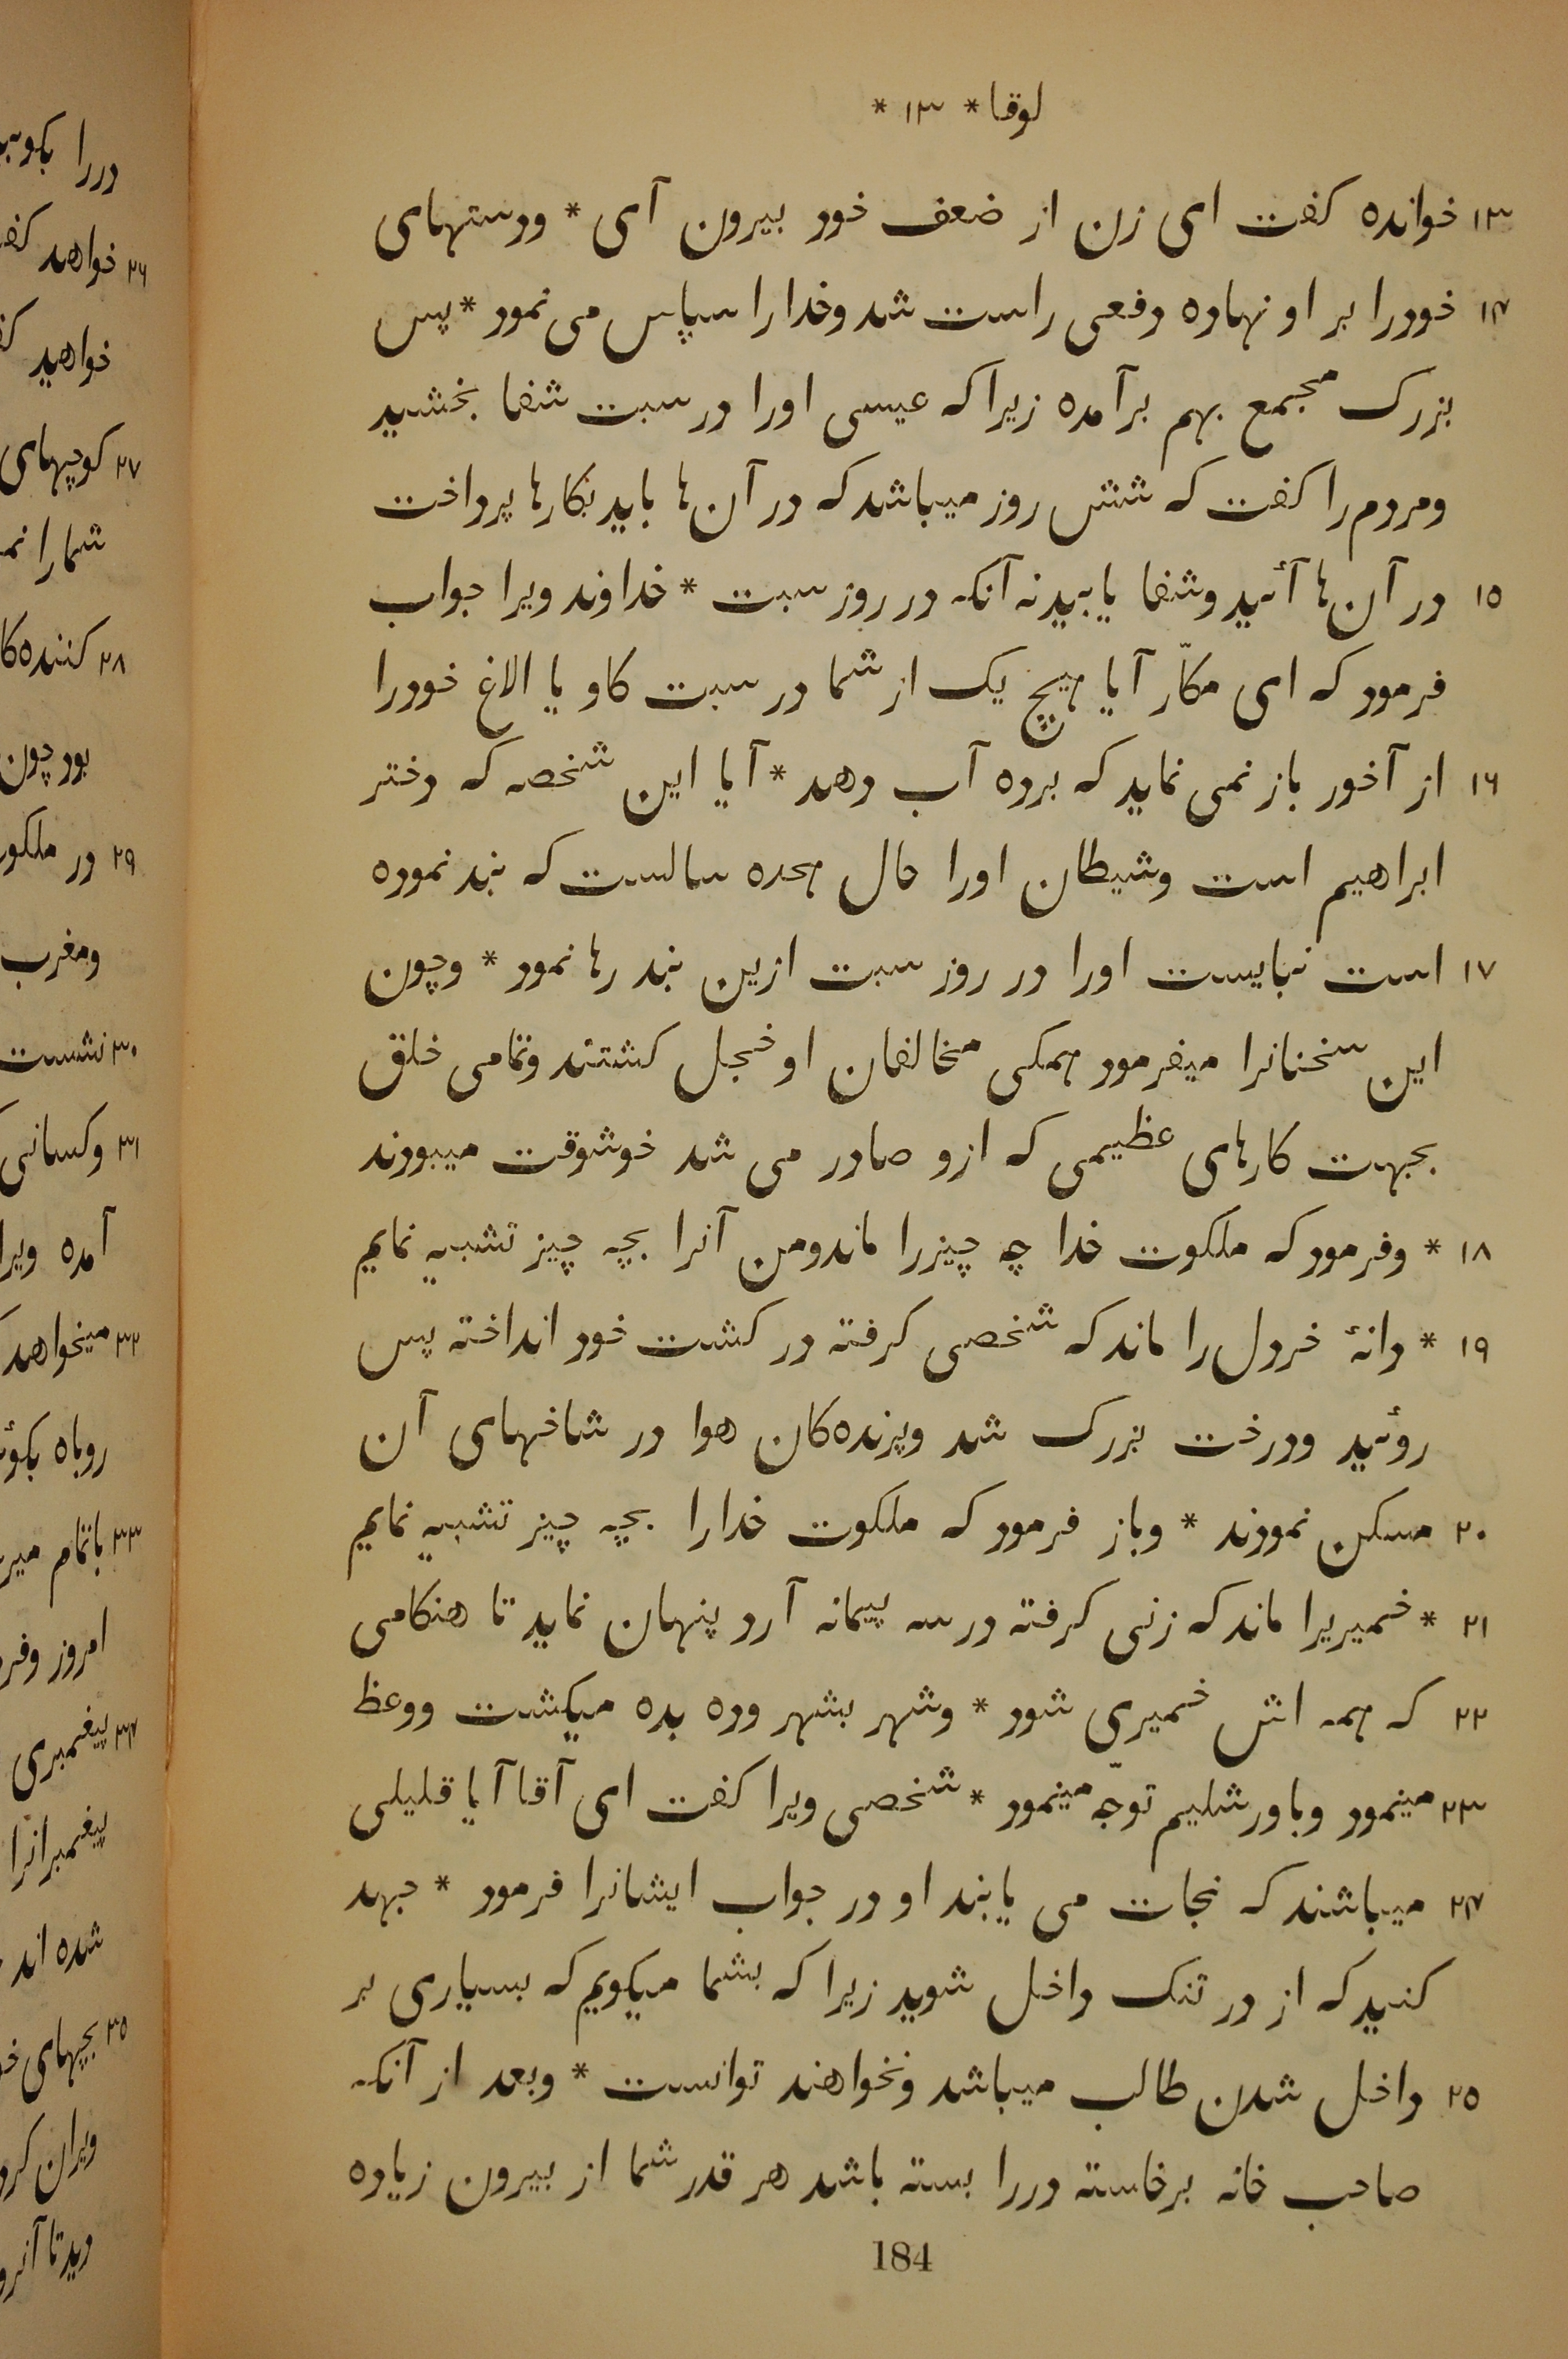 لوقا * ۱۳ *
۱۳ خوانده کفت ای زن از ضعف خود بیرون آی * ودستهای
۱۴ خودرا بر او نهاده دفعی راست شد وخدارا سپاس می نمود * پس
بزرک مجمع بهم برآمده زیراکه عیسی اورا در سبت شفا بخشید
ومردم را کفت که شش روز میباشد که در آن‌ها باید بکارها پرداخت
۱۵ در آن‌ها آئید وشفا یابید نه آنکه در روز سبت * خداوند ویرا جواب
فرمود که ای مکّار آیا هیچ یک از شما در سبت کاو یا الاغ خودرا
۱۶ از آخور باز نمی نماید که برده آب دهد * آیا این شخصه که دختر
ابراهیم است وشیطان اورا حال هجده سالست که بند نموده
۱۷ است نبایست اورا در روز سبت ازین بند رها نمود * وچون
این سخنانرا میفرمود همکی مخالفان او خجل کشتند وتمامی خلق
بجهت کارهای عظیمی که ازو صادر می شد خوشوقت میبودند
۱۸ * وفرمود که ملکوت خدا چه چیزرا ماند ومن آنرا بچه چیز تشبیه نمایم
۱۹ * دانهٔ خردل را ماند که شخصی کرفته در کشت خود انداخته پس
روئید ودرخت بزرک شد وپرنده‌کان هوا در شاخهای آن
۲۰ مسکن نمودند * وباز فرمود که ملکوت خدارا بچه چیز تشبیه نمایم
۲۱ * خمیریرا ماند که زنی کرفته در سه پیمانه آرد پنهان نماید تا هنکامی
۲۲ که همه اش خمیری شود * وشهر بشهر وده بده میکشت ووعظ
۲۳ مینمود وباورشلیم توجّه مینمود * شخصی ویرا کفت ای آقا آیا قلیلی
۲۴ میباشند که نجات می یابند او در جواب ایشانرا فرمود * جهد
کنید که از در تنک داخل شوید زیرا که بشما میکویم که بسیاری بر
۲۵ داخل شدن طالب میباشد ونخواهند توانست * وبعد از آنکه
صاحب خانه برخاسته دررا بسته باشد هر قدر شما از بیرون زیاده
184
دررا بکوبید
۲۶ خواهد
خواهید
۲۷ کوچهای
شمارا
۲۸ کننده‌کا
بود چون
۲۹ در ملکوت
ومغرب
۳۰ نشست
۳۱ وکسانی
آمده ویرا
۳۲ میخواهد
روباه
۳۳ باتمام
امروز
۳۴ پیغمبری
پیغمبرانرا
شده اند
۳۵ بچهای
ویران
دید تا